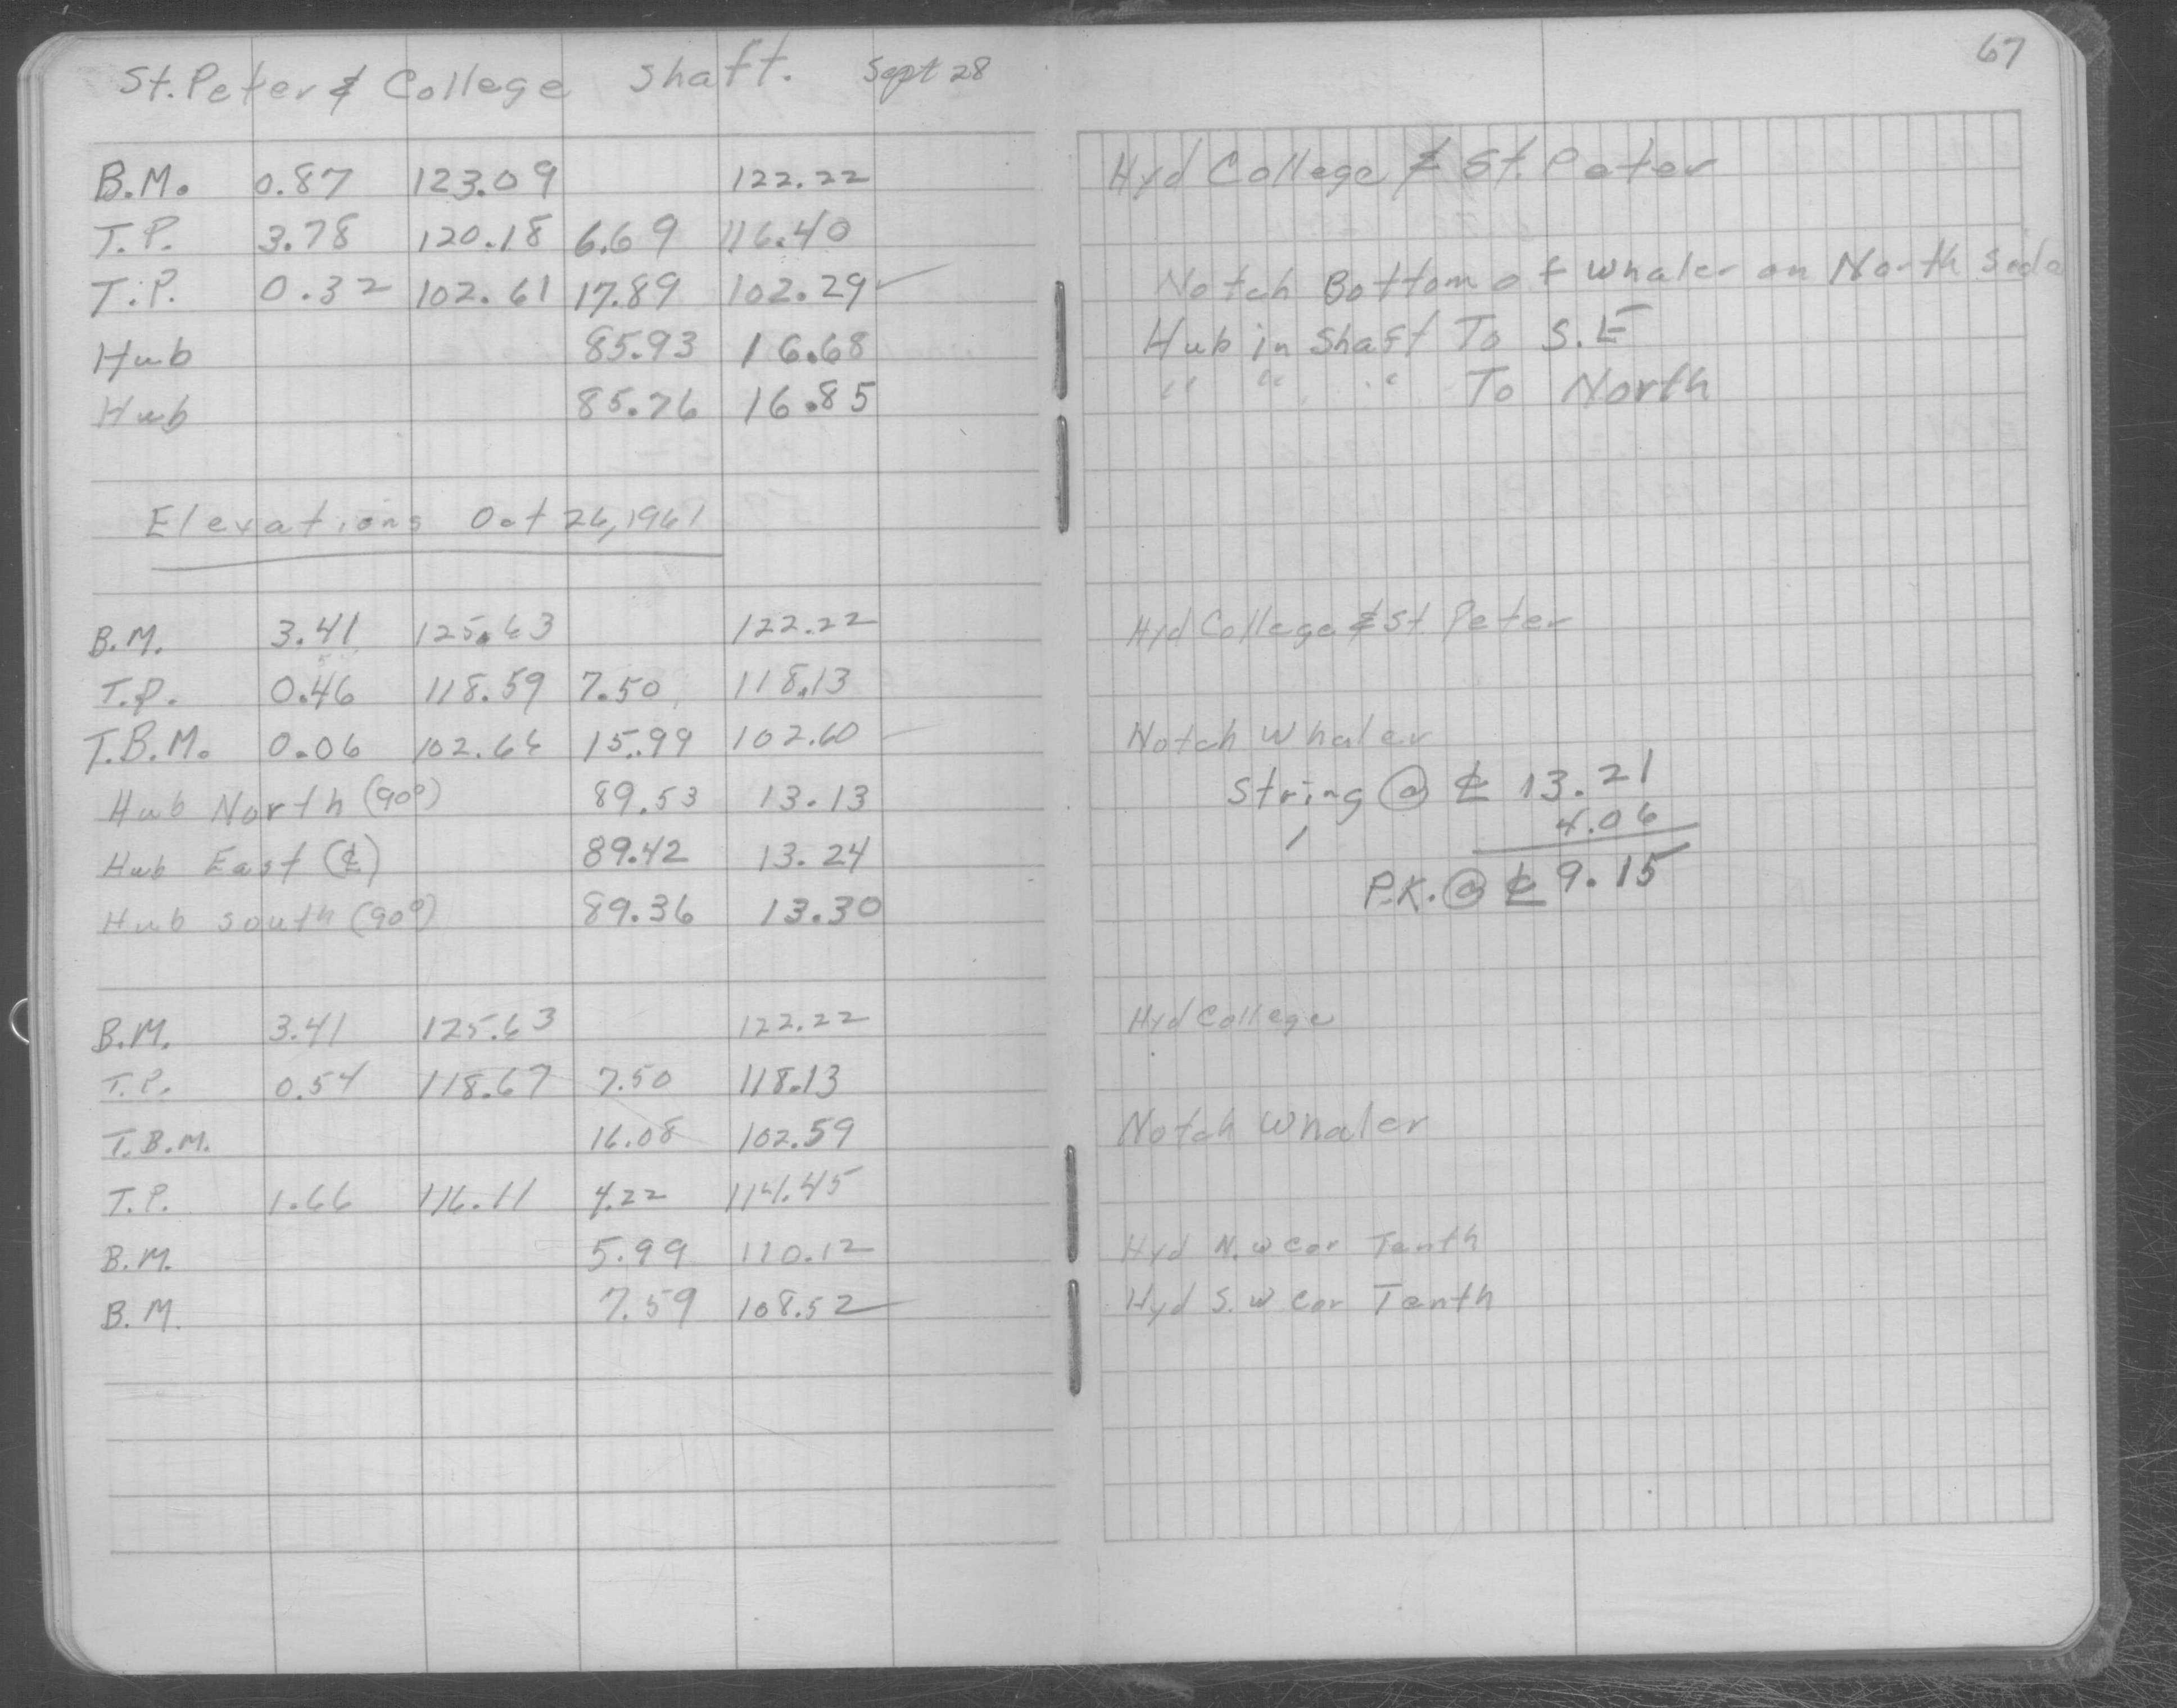 St. Peter & College Shaft. Sept 28
67
B.M. 0.87 123.09 122.22 Hyd College & St. Peter
T.P. 3.78 120.18 6.69 116.40
T.P. 0.32 102.61 17.89 102.29 ✓ Notch Bottom of Whaler on North Side
Hub 85.93 16.68 Hub in Shaft To S.E
Hub 85.76 16.85 " " " To North
Elevations Oct 26, 1961
B.M. 3.41 125.63 122.22 Hyd College & St. Peter
T.P. 0.46 118.59 7.50 118.13
T.B.M. 0.06 102.66 15.99 102.60 Notch Whaler
Hub North (90°) 89.53 13.13 String @ ℄ 13.21
4.06
Hub East (℄) 89.42 13.24 P.K. @ ℄ 9.15
Hub South (90°) 89.36 13.30
B.M. 3.41 125.63 122.22 Hyd College
T.P. 0.54 118.67 7.50 118.13
T.B.M. 16.08 102.59 Notch Whaler
T.P. 1.66 116.11 4.22 114.45
B.M. 5.99 110.12 Hyd N.W Cor Tenth
B.M. 7.59 108.52 Hyd S.W Cor Tenth